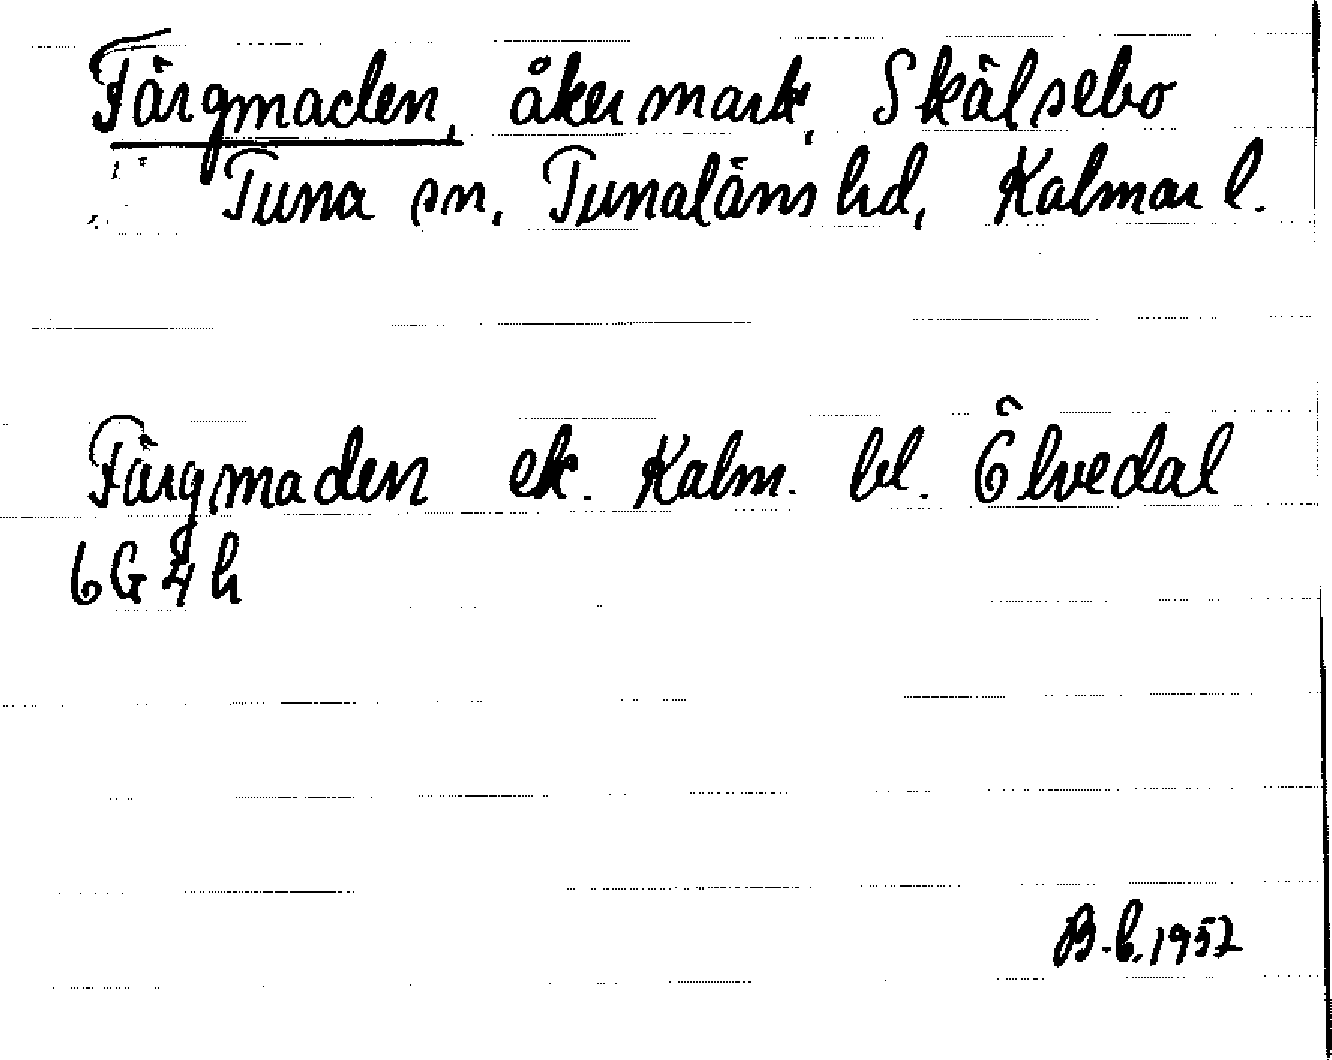 Färgmaden, åkermark, Skälsebo
Tuna sn, Tunaläns hd, Kalmar l.
Färgmaden ek. Kalm. bl. Ölvedal
6G4h
B.L. 1957